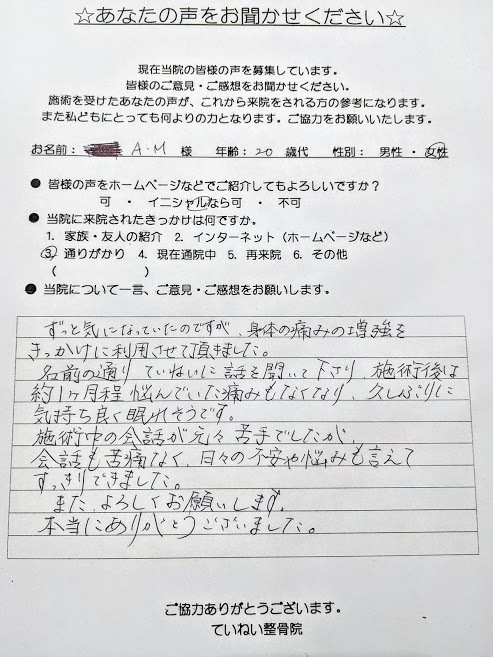 ☆あなたの声をお聞かせください☆
現在当院の皆様の声を募集しています。
皆様のご意見・ご感想をお聞かせください。
施術を受けたあなたの声が、これから来院をされる方の参考になります。
また私どもにとっても何よりの力となります。ご協力をお願いいたします。
お名前： A.M 様 年齢：20 歳代 性別： 男性 ・ 女性
● 皆様の声をホームページなどでご紹介してもよろしいですか？
可 ・ イニシャルなら可 ・ 不可
● 当院に来院されたきっかけは何ですか。
1. 家族・友人の紹介 2. インターネット（ホームページなど）
③ 通りがかり 4. 現在通院中 5. 再来院 6. その他
（ ）
● 当院について一言、ご意見・ご感想をお願いします。
ずっと気になっていたのですが、身体の痛みの増強を
きっかけに利用させて頂きました。
名前の通り ていねいに話を聞いて下さり、施術後は
約1ヶ月程 悩んでいた痛みもなくなり、久しぶりに
気持ち良く眠れそうです。
施術中の会話が元々 苦手でしたが、
会話も苦痛なく、日々の不安や悩みも言えて
すっきりできました。
また、よろしくお願いします。
本当にありがとうございました。
ご協力ありがとうございます。
ていねい整骨院